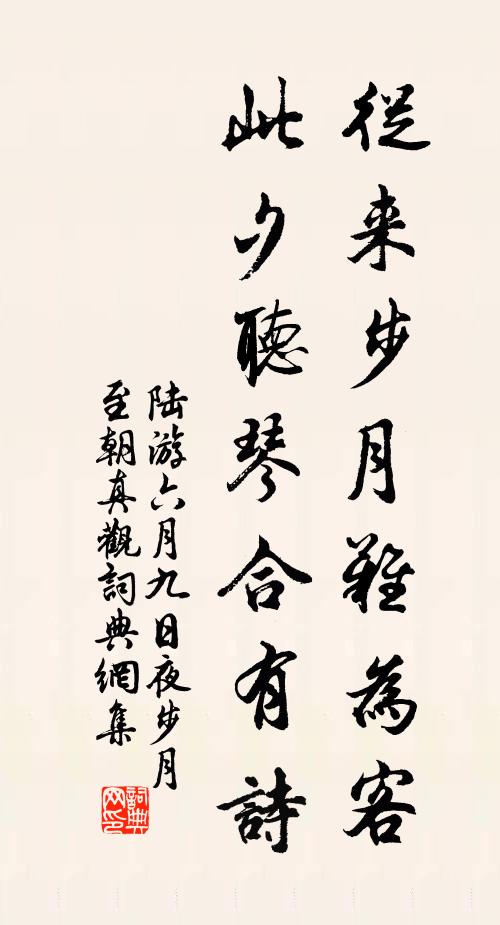 從来步月難為客
此夕聽琴合有詩
陆游六月九日夜步月
至朝真觀詞典網集
詞典
网印